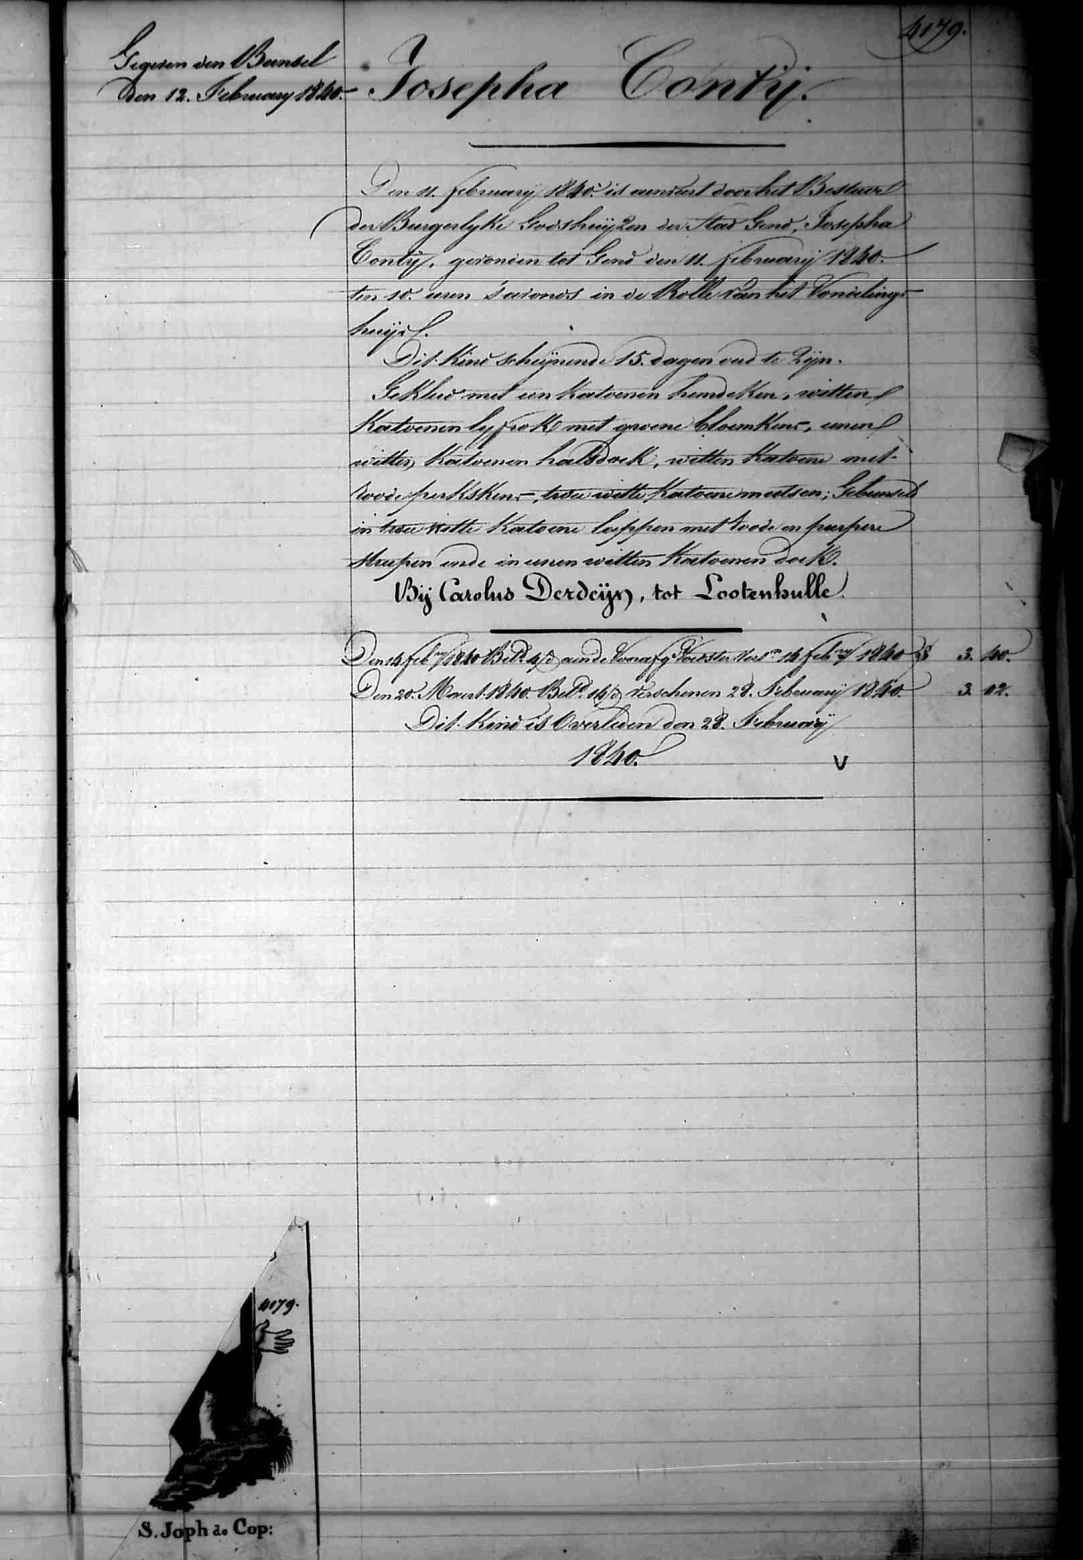 4179.
Gegeven den Bunsel
den 12. February 1840.
Josepha Contÿ.
Den 11. februarÿ 1840. is aenveert door het Bestuur
der Burgerlyke Godshuÿzen der stad Gend, Josepha
Contÿ, gevonden tot Gend den 11. februarÿ 1840.
ten 10. uren s'avonds in de Rolle van het Vondelings-
huÿs.
Dit Kind scheÿnende 15. dagen oud te Zÿn.
Gekleed met een Katoenen hemdeken, witten
Katoenen lyfrok met groene bloemkens, eenen
witten Katoenen halsdoek, witten Katoene met
roode perkskens, twee witte Katoene mutsen; Gebunseld
in twee witte Katoene lappen met roode en purpere
streepen ende in eenen witten Katoenen doek.
Bÿ Carolus Derdeÿn, tot Lootenhulle.
Den 14 feb.ÿ 1840 Bet.d aen de Voedster 14 feb.ÿ 1840 3. 40.
Den 20. Maart 1840. Bet.d verschenen 28. Februarÿ 1840. 3. 02.
Dit Kind is Overleden den 28. Februarÿ
1840. V
4179.
S. Joph de Cop: